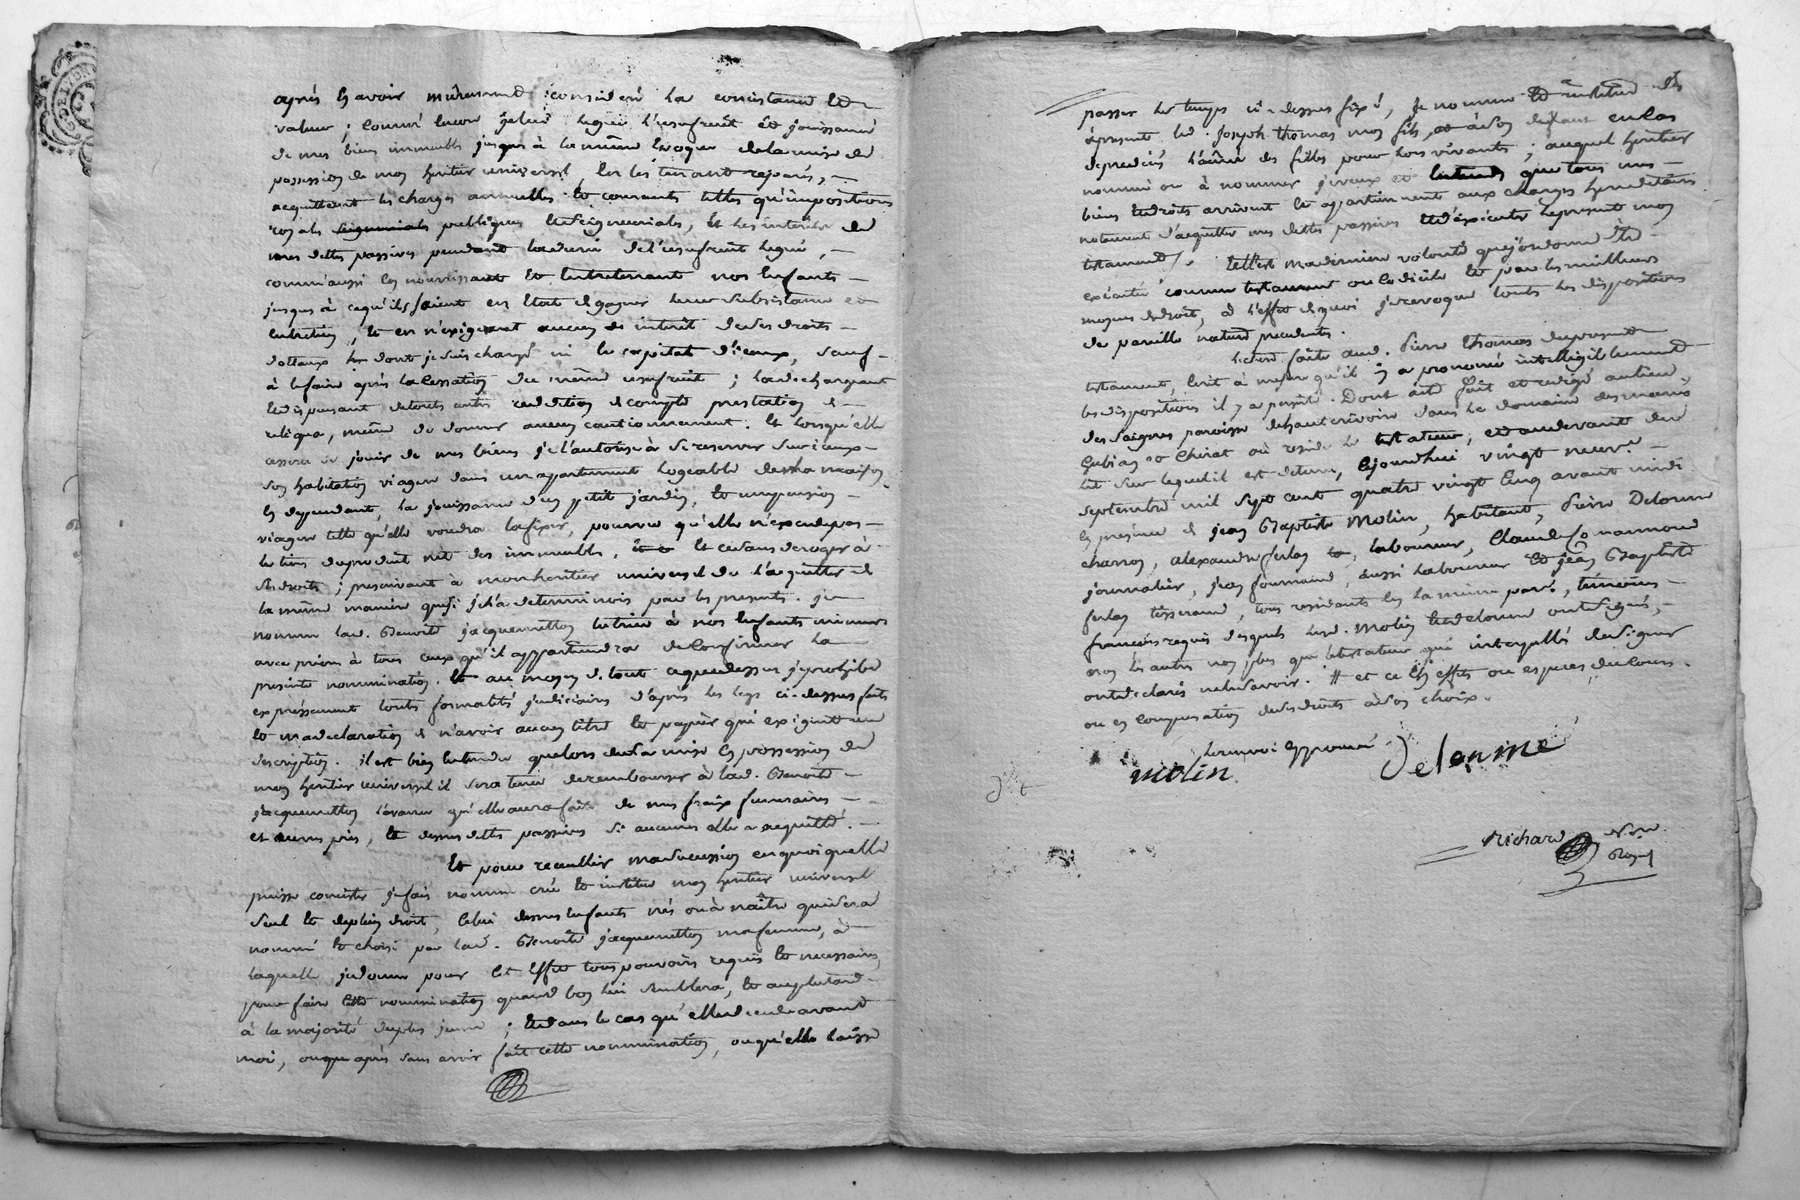 après en avoir mûrement considéré la consistance et
valeur; comm'encor je lui legue l'usufruit et jouissance
de mes biens immeubles jusques à la même époque de la mise de
possession de mon heritier universel, en les tenant reparés,
acquittant les charges annuelles et courants telles qu'impositions
royales publiques et seigneuriales, et les interêts de
mes dettes passives pendant la durée de l'usufruit legué,
comm'aussi en nourrissant et entretenant nos enfants
jusques à cequ'ils soient en état de gagner leur subsistance et
entretien, et en n'exigeant aucun interêt de ses droits
dottaux dont je suis chargé ni le capital d'iceux, sauf
à le faire après la cessation du même usufruit; la dechargeant
et dispensant de toutes reddition de compte prestation de
reliqua, même de donner aucun cautionnement. et lorsqu'elle
cessera de jouir de mes biens je l'autorise à se reserver sur iceux
son habitation viagere dans un appartement logeable de ma maison
en dependant, la jouissance d'un petit jardin, et une pension
viagere telle qu'elle voudra la fixer, pourvu qu'elle n'excede pas
le tiers du produit net des immeubles, et ce sans deroger à
ses droits; prescrivant à mon heritier universel de l'acquitter de
la même maniere que si je la determinois par les presentes. je
nomme lad. Benoite jacquemetton tutrice à nos enfants mineurs
avec priere à tous ceux qu'il appartiendra de confirmer la
presente nomination. et au moyen de tout ceque dessus je prohibe
expréssement toutes formalités judiciaires d'après les legs ci-dessus faits
et ma declaration de n'avoir aucun titre et papier qui exigent une
description. il est bien entendu que lors de la mise en possession de
mon heritier universel il sera tenu de rembourser à lad. Benoite
jacquemetton l'avance qu'elle aura faite de mes fraix funeraires
et œuvres pies, et de mes dettes passives si aucunes elle a acquitté.
Et pour recueillir ma succession en quoi quelle
puisse consister je fais nomme crée et institue mon heritier universel
seul et de plein droit, celui de mes enfants nés ou à naître qui sera
nommé et choisi par lad. Benoite jacquemetton ma femme, à
laquelle je donne pour cet effet tous pouvoirs requis et necessaires
pour faire cette nomination quand bon lui semblera, et au plutard
à la majorité du plus jeune; et dans le cas qu'elle decede avant
moi, ou que après sans avoir fait cette nomination, ou qu'elle laisse
passer le temps ci-dessus fixé, je nomme et institue dès
à present led. joseph thomas mon fils, et à son defaut en cas
de predecès l'aîné des filles pour lors vivantes; auquel heritier
nommé ou à nommer je veux et entends que tous mes
biens et droits arrivent et appartiennent aux charges hereditaires
notamment d'acquitter mes dettes passives et d'executer le present mon
testament. tell'est ma derniere volonté que j'ordonne être
executée comme testament ou codicile et par les meilleurs
moyens de droit, à l'effet de quoi je revoque toutes les dispositions
de pareille nature precedentes.
lecture faite aud. Pierre thomas du present
testament, écrit à mesure qu'il en a prononcé intelligiblement
les dispositions il y a persisté. Dont acte fait et redigé au lieu
des Saignes paroisse de hauterivoire dans le domaine des mariés
Gubian et Chirat où reside le testateur, et au devant du
lit sur lequel il est detenu, cejourdhui vingt neuf
septembre mil sept cent quatre vingt cinq avant midi
en presence de jean Baptiste Molin, habitant, Pierre Delorme
charron, alexandre ferlay, laboureur, Claude Connamond
journalier, jean fournand, aussi laboureur et jean Baptiste
ferlay tisserand, tous residants en la même par., temoins
françois requis desquels lesd. Molin et delorme ont signé,
non les autres non plus que le testateur qui interpellés de signer
ont declarés ne le savoir. # et ce en effets ou especes de cours
ou en compensation de ses droits à son choix.
le renvoi approuvé
molin
Delorme
Richard
Nore
Royal